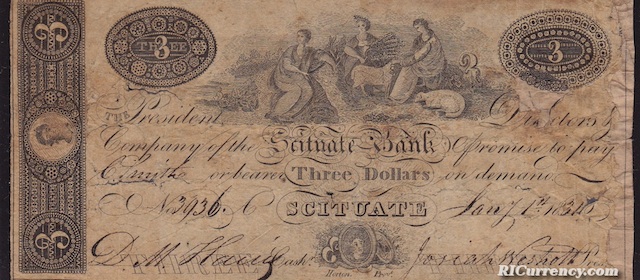 3 THREE 3
THE President, Directors &
Company of the Scituate Bank Promise to pay
C. Smith or bearer Three Dollars on demand
No. 3936. SCITUATE Jany. 1st 1834
Cashr. Josiah Westcott Pres.
THREE
RICurrency.com